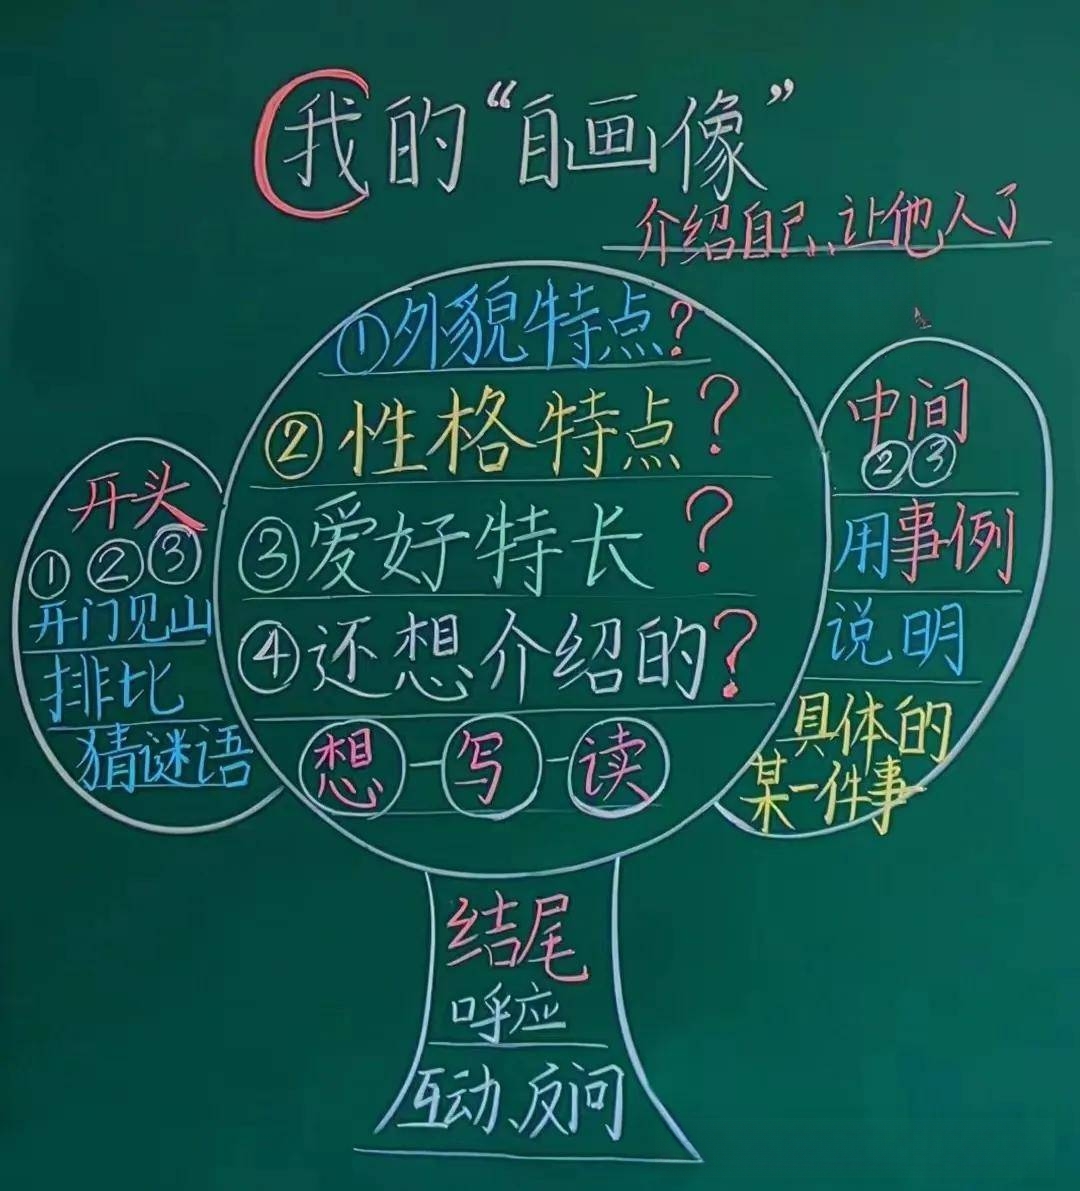 我的“自画像”
介绍自己,让他人了
①外貌特点?
②性格特点?
③爱好特长?
④还想介绍的?
想-写-读
开头
①②③
开门见山
排比
猜谜语
中间
②③
用事例
说明
具体的
某一件事
结尾
呼应
互动、反问